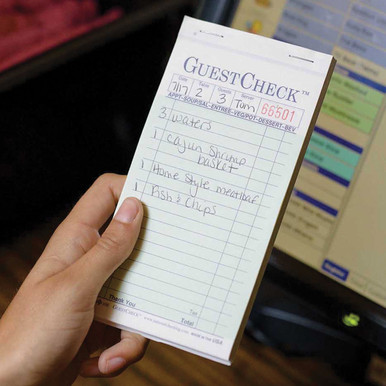 GUESTCHECK™
Date Table Guests Server
7/17 2 3 Tom 66501
APPT-SOUP/SAL-ENTREE-VEG/POT-DESSERT-BEV
3 waters
1 Cajun Shrimp
basket
1 Home Style meatloaf
1 Fish & Chips
Tax
Thank You
Total
GUESTCHECK™
MADE IN THE USA